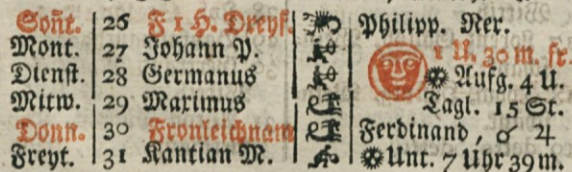 Soñt. 26 F 1 H. Dreyf. Philipp. Ner.
Mont. 27 Johann P. 1 U. 30 m. fr.
Dienst. 28 Germanus Aufg. 4 U.
Mitw. 29 Maximus Tagl. 15 St.
Donn. 30 Fronleichnam Ferdinand, ☌ ♃
Freyt. 31 Kantian M. Unt. 7 Uhr 39 m.